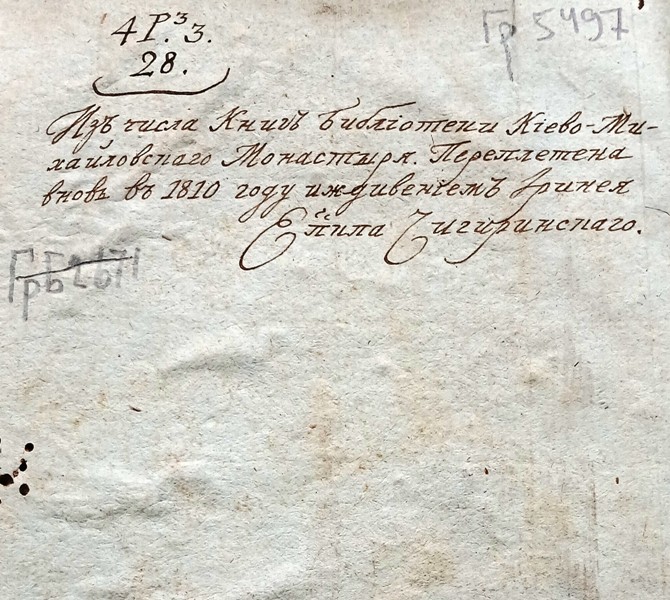 4 Р.³ 3.
28.
Гр 5497
Изъ числа Книгъ Библіотеки Кіево-Ми-
хайловскаго Монастыря. Переплетена
вновь въ 1810 году иждивеніемъ Іринея
Епⷭ҇кпа Чигиринскаго.
ГрБ 2671